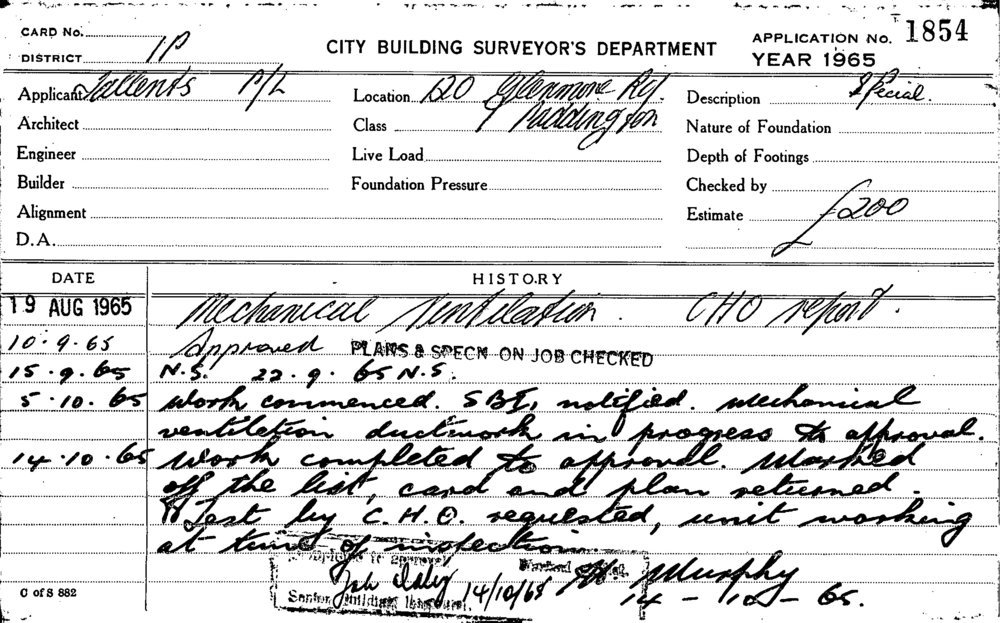 CARD No.
DISTRICT 1P
CITY BUILDING SURVEYOR'S DEPARTMENT
APPLICATION No. 1854
YEAR 1965
Applicant Tallents P/L
Location 120 Glenmore Rd.
Paddington
Description Special.
Architect
Class
Nature of Foundation
Engineer
Live Load
Depth of Footings
Builder
Foundation Pressure
Checked by
Alignment
Estimate £200
D.A.
DATE HISTORY
19 AUG 1965 Mechanical Ventilation. CHO report.
10.9.65 Approved PLANS & SPECN ON JOB CHECKED
15.9.65 N.S. 22.9.65 N.S.
5.10.65 Work commenced. SBI, notified. Mechanical
ventilation ductwork in progress to approval.
14.10.65 Work completed to approval. Marked
off the list, card and plan returned.
Test by C.H.O. requested, unit working
at time of inspection.
14/10/65
Murphy
14-10-65.
Senior Building Inspector.
C of S 882